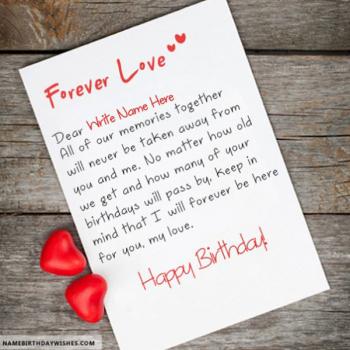 Forever Love
Dear Write Name Here
All of our memories together
will never be taken away from
you and me. No matter how old
we get and how many of your
birthdays will pass by, keep in
mind that I will forever be here
for you, my love.
Happy Birthday!
NAMEBIRTHDAYWISHES.COM